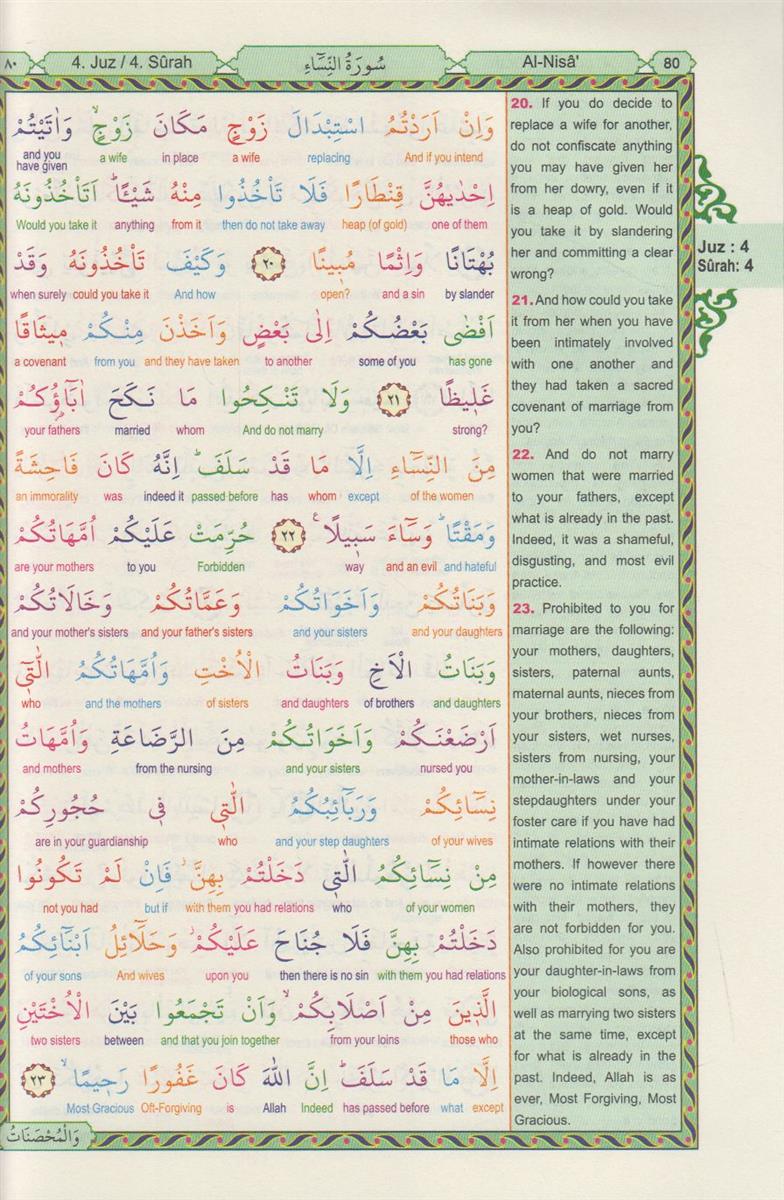 ٨٠
4. Juz / 4. Sûrah
سُورَةُ النِّسَٓاءِ
Al-Nisâ'
80
وَاِنْ اَرَدْتُمُ اسْتِبْدَالَ زَوْجٍ مَكَانَ زَوْجٍۙ وَاٰتَيْتُمْ
And if you intend replacing a wife in place a wife and you have given
اِحْدٰيهُنَّ قِنْطَارًا فَلَا تَأْخُذُوا مِنْهُ شَيْـًٔاۜ اَتَأْخُذُونَهُ
one of them heap (of gold) then do not take away from it anything Would you take it
بُهْتَانًا وَاِثْمًا مُب۪ينًا ﴿٢٠﴾ وَكَيْفَ تَأْخُذُونَهُ وَقَدْ
by slander and a sin open? And how could you take it when surely
اَفْضٰى بَعْضُكُمْ اِلٰى بَعْضٍ وَاَخَذْنَ مِنْكُمْ م۪يثَاقًا
has gone some of you to another and they have taken from you a covenant
غَل۪يظًا ﴿٢١﴾ وَلَا تَنْكِحُوا مَا نَكَحَ اٰبَٓاؤُ۬كُمْ
strong? And do not marry whom married your fathers
مِنَ النِّسَٓاءِ اِلَّا مَا قَدْ سَلَفَۜ اِنَّهُ كَانَ فَاحِشَةً
of the women except whom has passed before indeed it was an immorality
وَمَقْتًاۜ وَسَٓاءَ سَب۪يلًا۟ ﴿٢٢﴾ حُرِّمَتْ عَلَيْكُمْ اُمَّهَاتُكُمْ
and hateful and an evil way Forbidden to you are your mothers
وَبَنَاتُكُمْ وَاَخَوَاتُكُمْ وَعَمَّاتُكُمْ وَخَالَاتُكُمْ
and your daughters and your sisters and your father's sisters and your mother's sisters
وَبَنَاتُ الْاَخِ وَبَنَاتُ الْاُخْتِ وَاُمَّهَاتُكُمُ الّٰت۪ٓي
and daughters of brothers and daughters of sisters and the mothers who
اَرْضَعْنَكُمْ وَاَخَوَاتُكُمْ مِنَ الرَّضَاعَةِ وَاُمَّهَاتُ
nursed you and your sisters from the nursing and mothers
نِسَٓائِكُمْ وَرَبَٓائِبُكُمُ الّٰت۪ي ف۪ي حُجُورِكُمْ
of your wives and your step daughters who are in your guardianship
مِنْ نِسَٓائِكُمُ الّٰت۪ي دَخَلْتُمْ بِهِنَّۘ فَاِنْ لَمْ تَكُونُوا
of your women who with them you had relations but if not you had
دَخَلْتُمْ بِهِنَّ فَلَا جُنَاحَ عَلَيْكُمْۘ وَحَلَٓائِلُ اَبْنَٓائِكُمُ
with them you had relations then there is no sin upon you And wives of your sons
الَّذ۪ينَ مِنْ اَصْلَابِكُمْۙ وَاَنْ تَجْمَعُوا بَيْنَ الْاُخْتَيْنِ
those who from your loins and that you join together between two sisters
اِلَّا مَا قَدْ سَلَفَۜ اِنَّ اللّٰهَ كَانَ غَفُورًا رَح۪يمًاۙ ﴿٢٣﴾
except what has passed before Indeed Allah is Oft-Forgiving Most Gracious
وَالْمُحْصَنَاتُ
20. If you do decide to
replace a wife for another,
do not confiscate anything
you may have given her
from her dowry, even if it
is a heap of gold. Would
you take it by slandering
her and committing a clear
wrong?
21. And how could you take
it from her when you have
been intimately involved
with one another and
they had taken a sacred
covenant of marriage from
you?
22. And do not marry
women that were married
to your fathers, except
what is already in the past.
Indeed, it was a shameful,
disgusting, and most evil
practice.
23. Prohibited to you for
marriage are the following:
your mothers, daughters,
sisters, paternal aunts,
maternal aunts, nieces from
your brothers, nieces from
your sisters, wet nurses,
sisters from nursing, your
mother-in-laws and your
stepdaughters under your
foster care if you have had
intimate relations with their
mothers. If however there
were no intimate relations
with their mothers, they
are not forbidden for you.
Also prohibited for you are
your daughter-in-laws from
your biological sons, as
well as marrying two sisters
at the same time, except
for what is already in the
past. Indeed, Allah is as
ever, Most Forgiving, Most
Gracious.
Juz : 4
Sûrah: 4